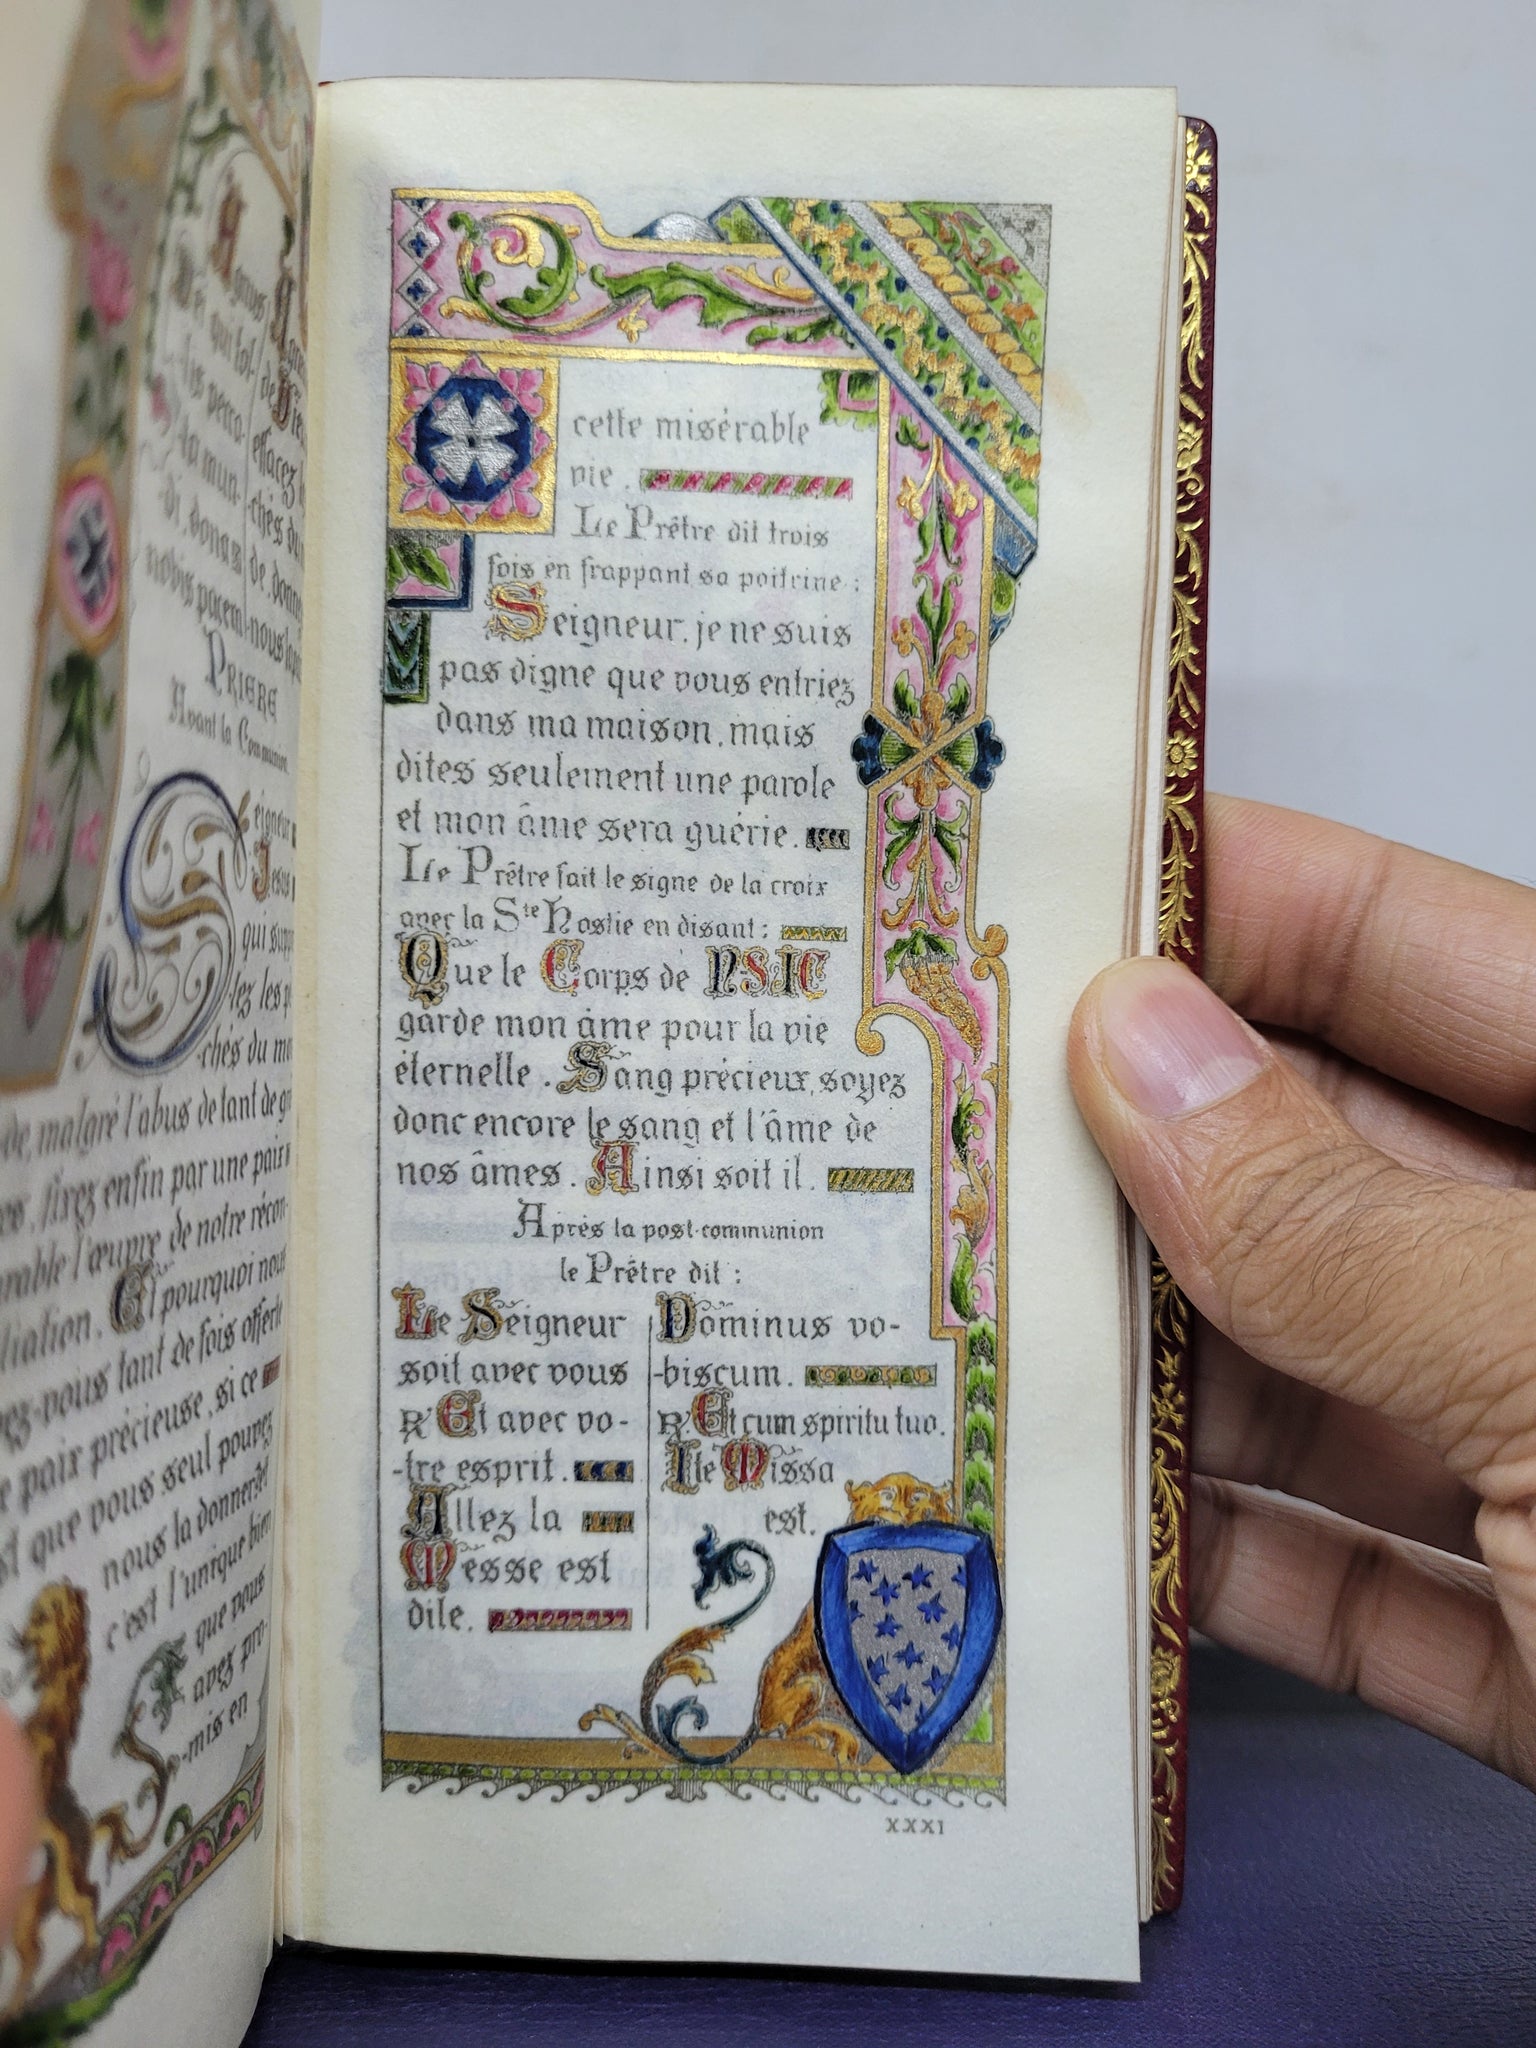 Agnus
Dei qui tol-
-lis pecca-
-ta mun-
-di, dona
nobis pacem.
de Dieu
effacez
-chés du
de, donnez
-nous la paix
PRIERE
Avant la Communion.
Seigneur
Jesus
qui
-lez les
-chés du
de, malgré l'abus de tant de
, tirez enfin par une paix
l'œuvre de notre récon-
-ciliation. Et pourquoi nous
-vous tant de fois offerte
paix précieuse, si ce
que vous seul pouvez
nous la donner et
c'est l'unique bien
que vous
avez pro-
-mis en
cette misérable
vie.
Le Prêtre dit trois
fois en frappant sa poitrine :
Seigneur, je ne suis
pas digne que vous entriez
dans ma maison, mais
dites seulement une parole
et mon âme sera guérie.
Le Prêtre fait le signe de la croix
avec la Ste Hostie en disant :
Que le Corps de N·S·J·C
garde mon âme pour la vie
éternelle. Sang précieux, soyez
donc encore le sang et l'âme de
nos âmes. Ainsi soit il.
Après la post-communion
le Prêtre dit :
Le Seigneur
soit avec vous
R' Et avec vo-
-tre esprit.
Allez la
Messe est
dite.
Dominus vo-
-biscum.
R' Et cum spiritu tuo.
Ite Missa
est.
XXXI